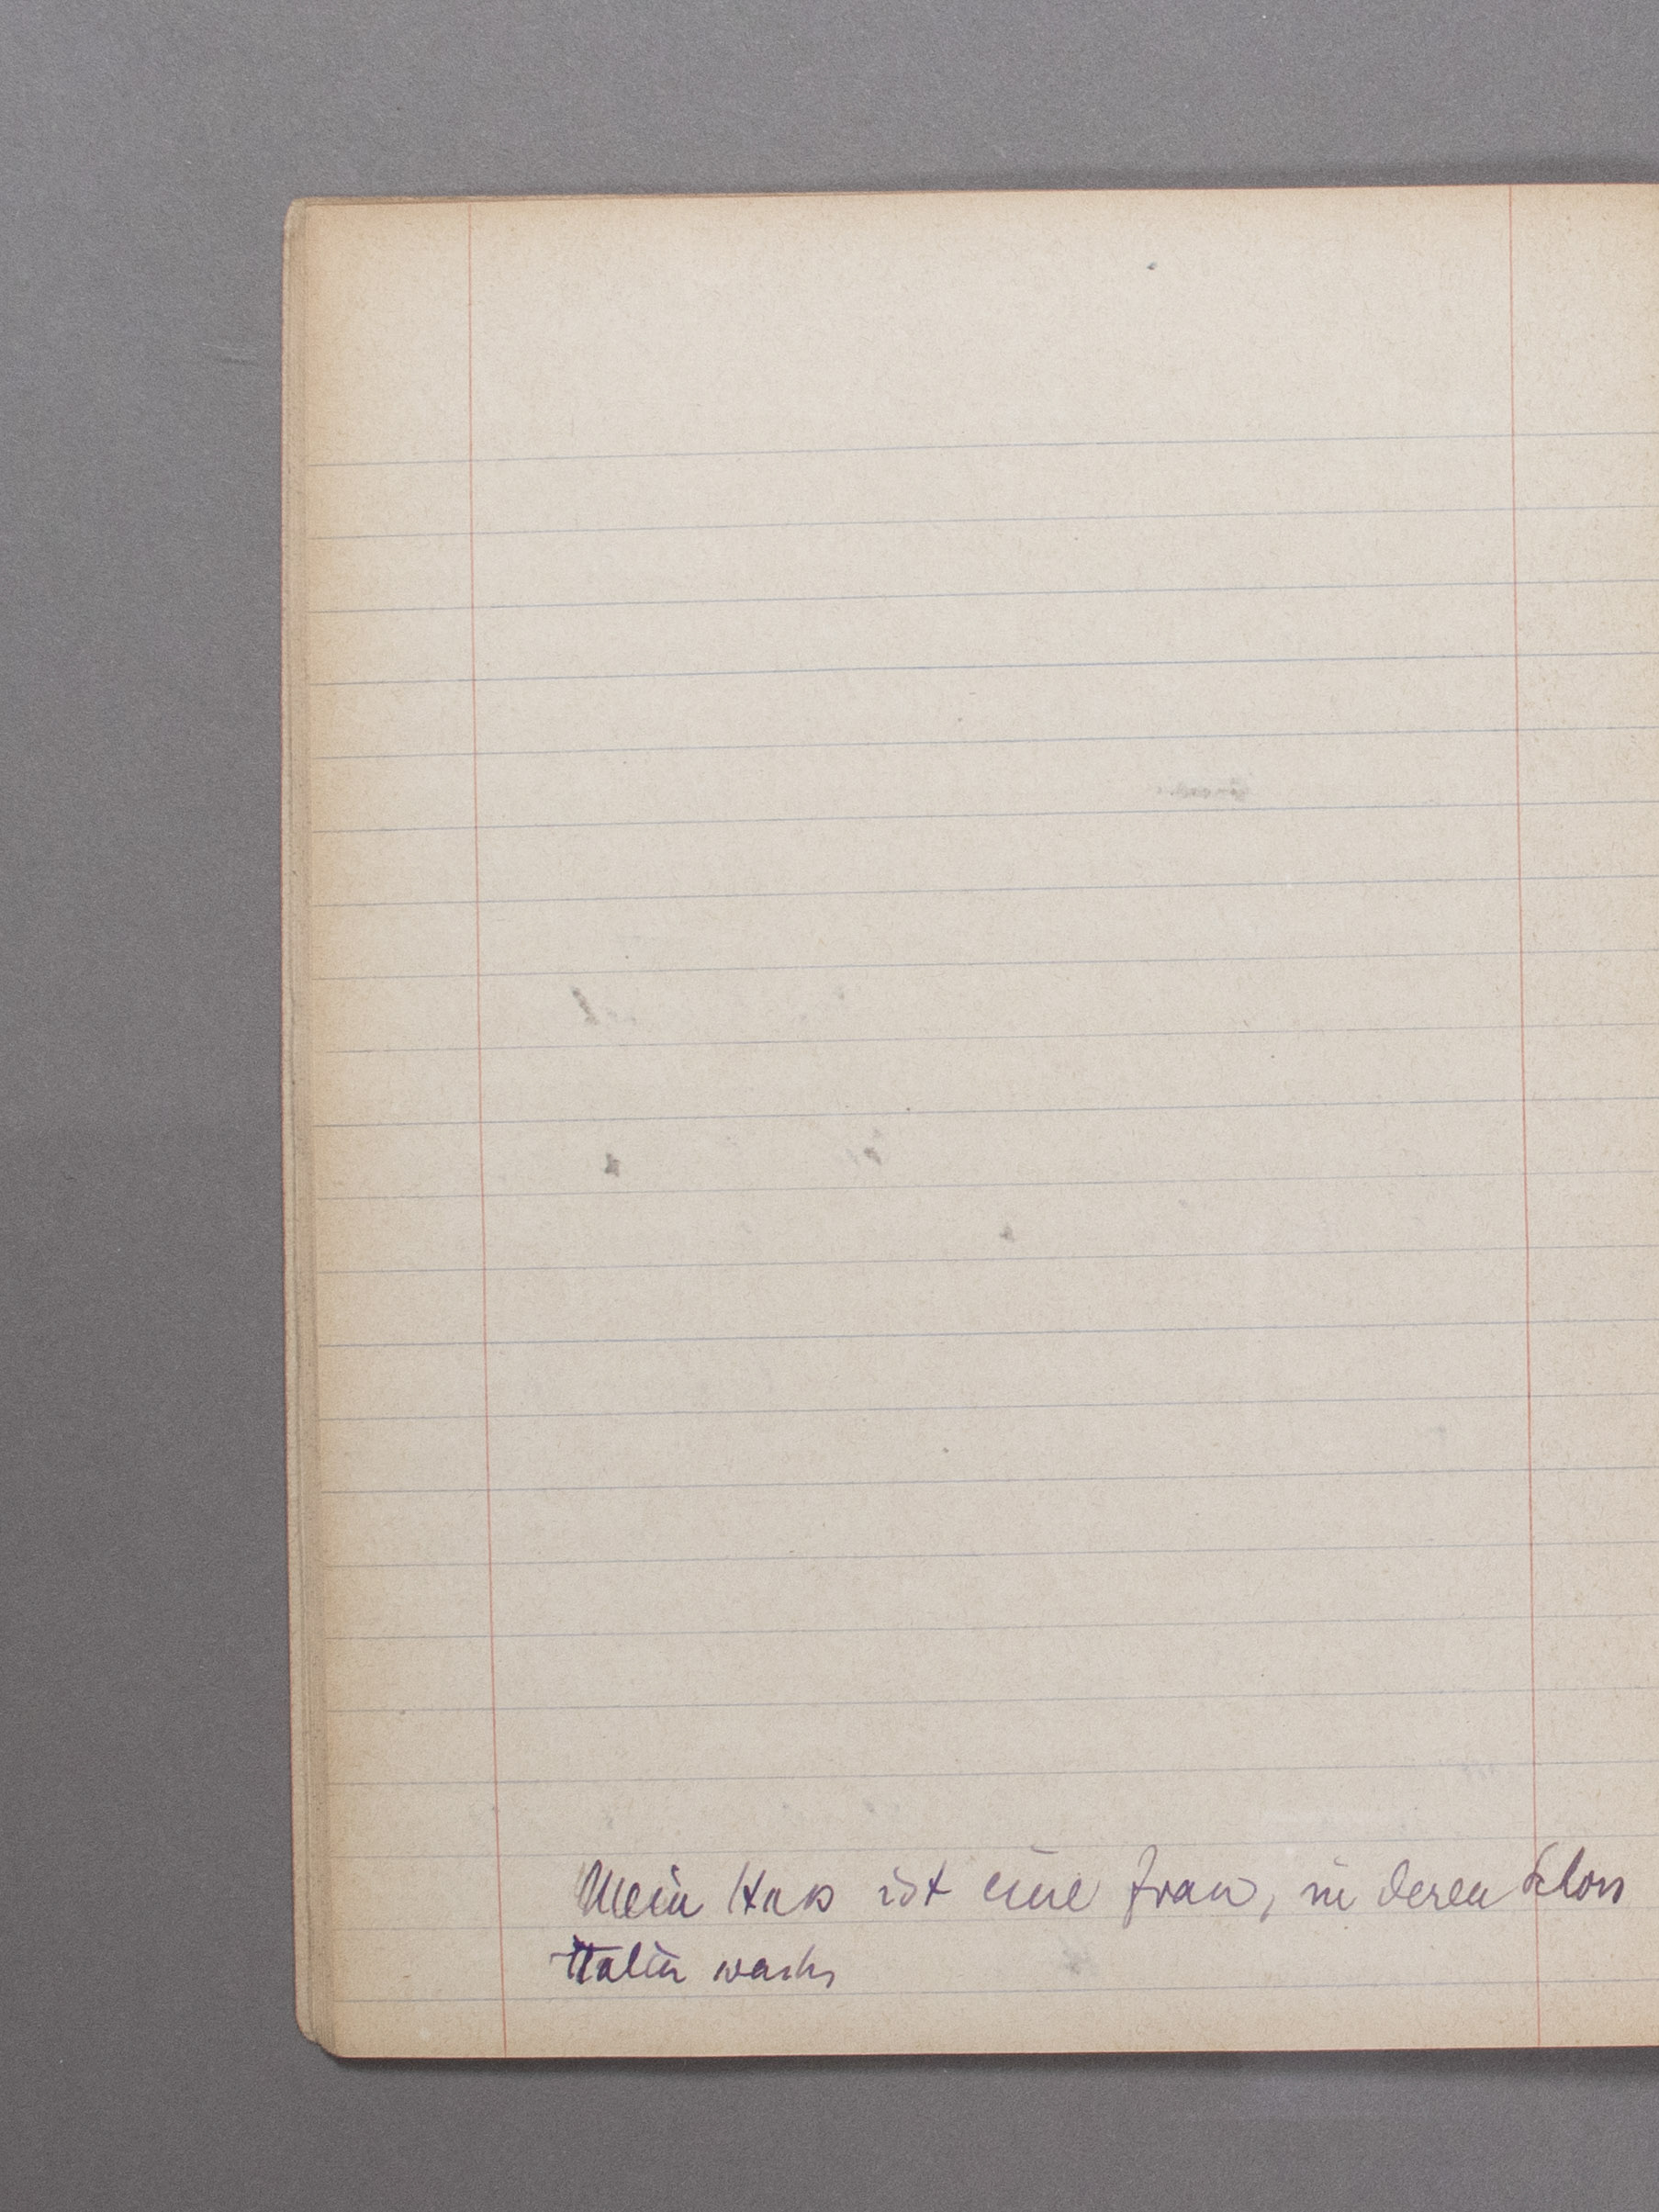 Mein Hass ist eine Frau, in deren Schoss
Italien wachs